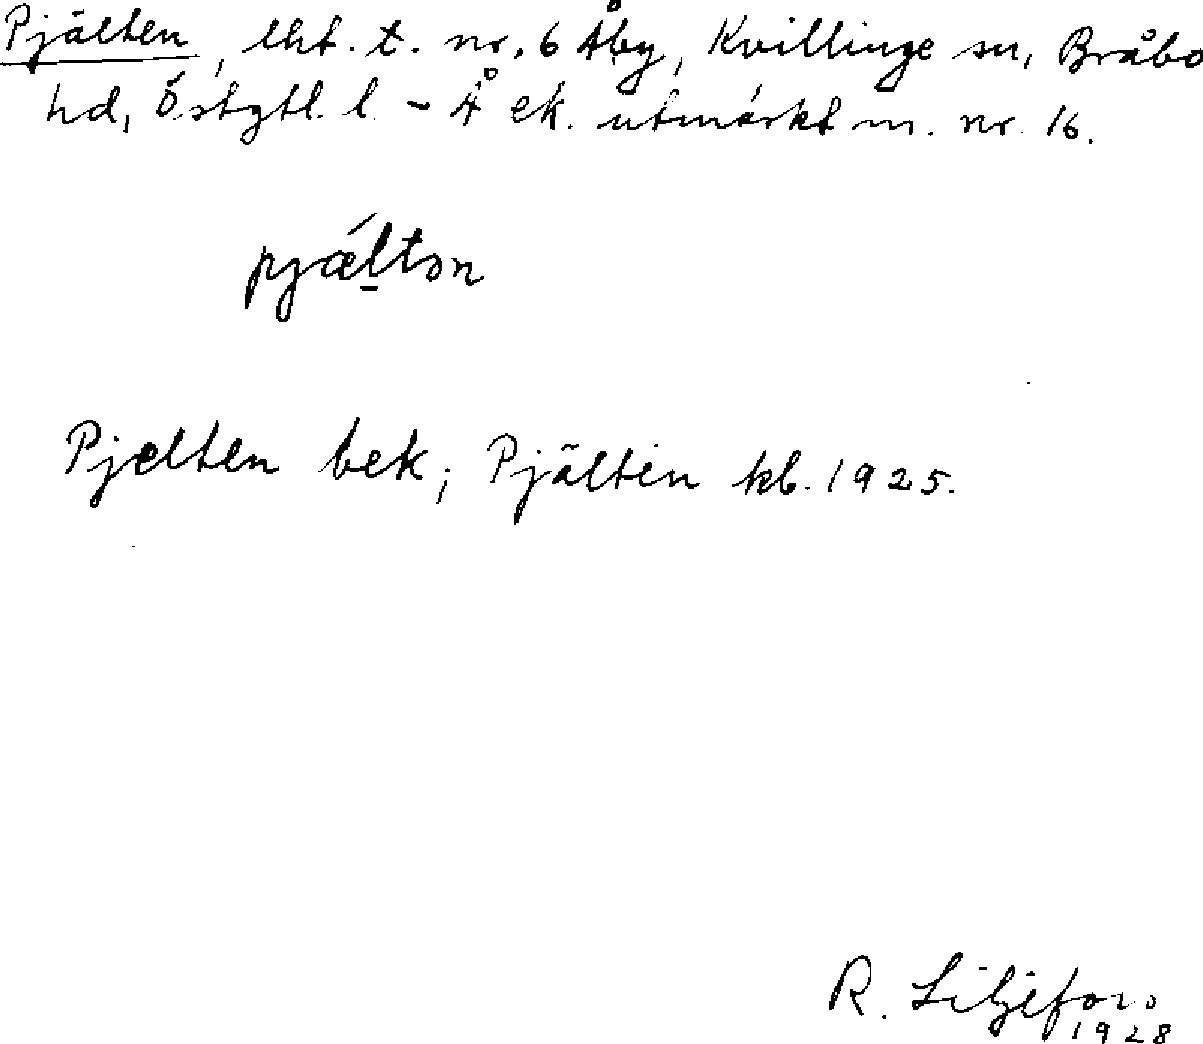 Pjälten, lht. t. nr. 6 Åby, Kvillinge sn, Bråbo
hd, Östgtl. l. - Å ek. utmärkt m. nr. 16.
pjǽltən
Pjelten bek; Pjälten kb. 1925.
R. Liljefors
1928